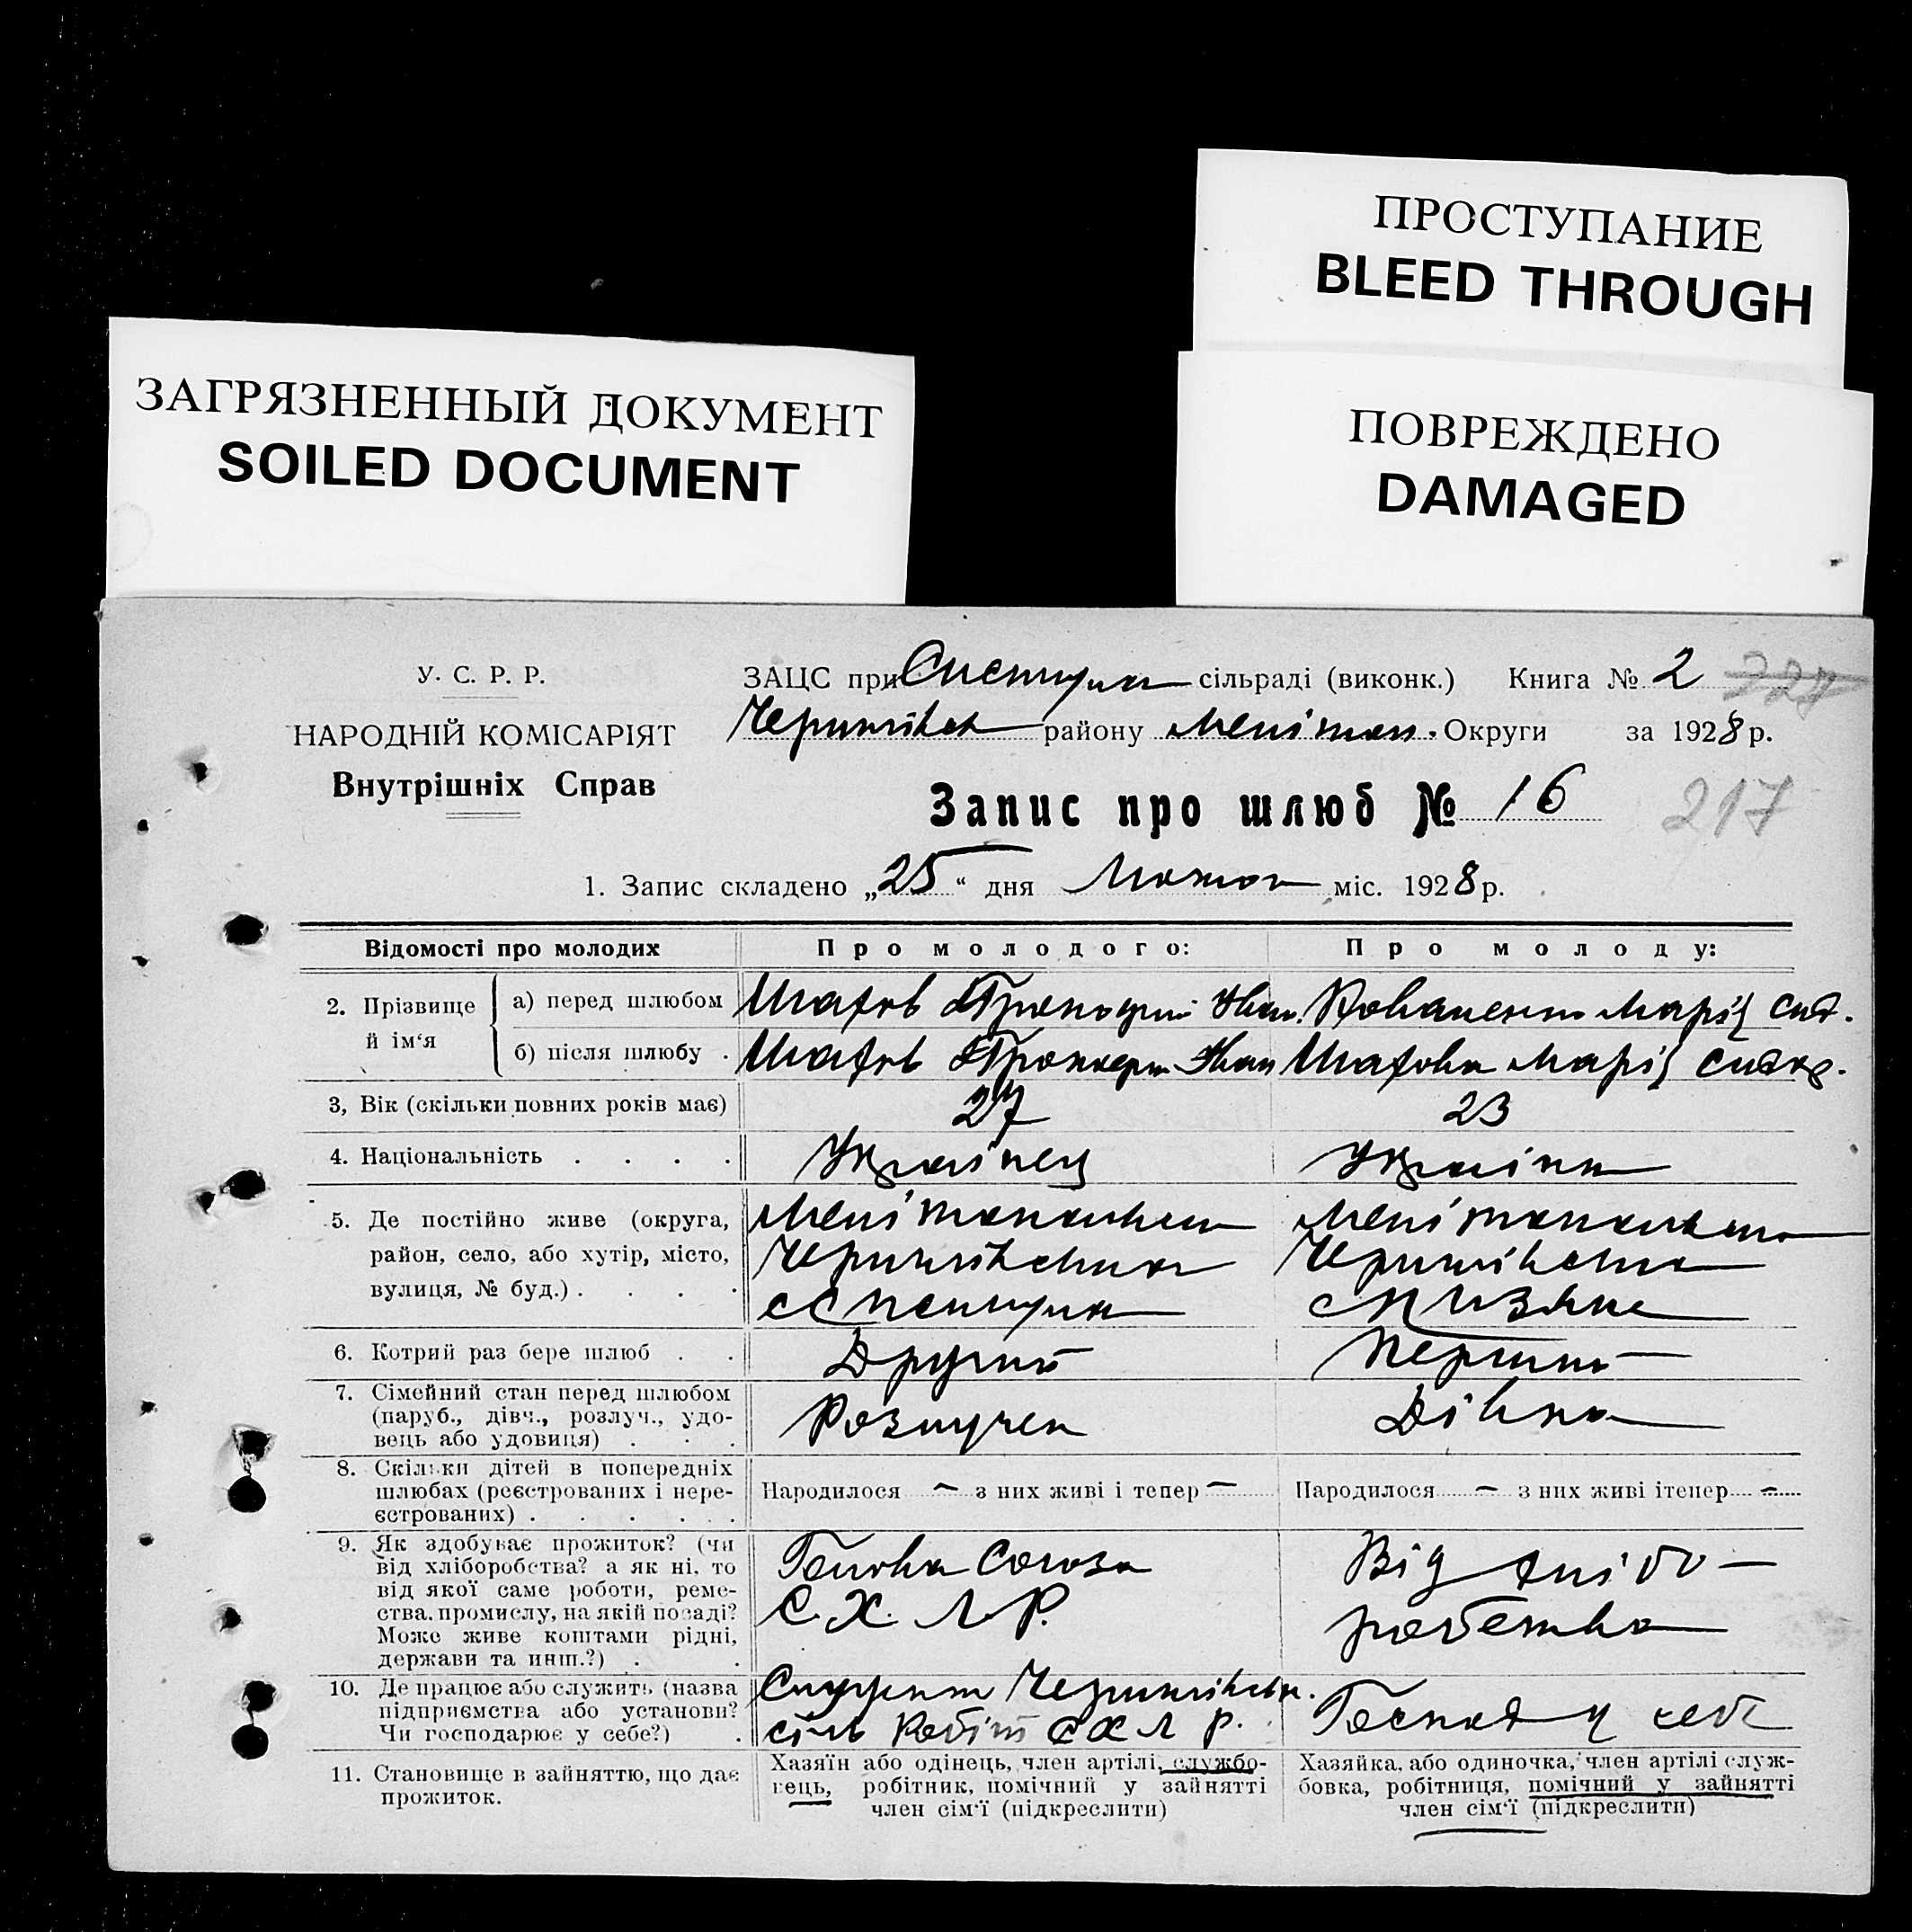 ПРОСТУПАНИЕ
BLEED THROUGH
ЗАГРЯЗНЕННЫЙ ДОКУМЕНТ
SOILED DOCUMENT
ПОВРЕЖДЕНО
DAMAGED
У. С. Р. Р.
НАРОДНІЙ КОМІСАРІЯТ
Внутрішніх Справ
ЗАЦС при сільраді (виконк.) Книга № 2
району Меліτοπ. Округи за 1928 р.
Запис про шлюб № 16
217
1. Запис складено „25“ дня міс. 1928 р.
Відомості про молодих
Про молодого:
Про молоду:
2. Прізвище й ім‘я
а) перед шлюбом
Шахов Іван. Коваленко Марія Сид.
б) після шлюбу .
Шахов Іван Шахова Марія Сидор.
3, Вік (скільки повних років має)
27
23
4. Національність . . . .
Українец
Українка
5. Де постійно живе (округа,
район, село, або хутір, місто,
вулиця, № буд.) . . . .
6. Котрий раз бере шлюб . .
Другий
Первий
7. Сімейний стан перед шлюбом
(паруб., дівч., розлуч., удо-
вець або удовиця) . . .
Розлучен
Дівка
8. Скільки дітей в попередніх
шлюбах (реєстрованих і нере-
єстрованих) . . . . . .
Народилося — з них живі і тепер —
Народилося — з них живі ітепер —
9. Як здобуває прожиток? (чи
від хліборобства? а як ні, то
від якої саме роботи, реме-
ства, промислу, на якій посаді?
Може живе коштами рідні,
держави та инш.?) . .
Голова Союза
С. Х. Л. Р.
Від хлібо-
робства
10. Де працює або служить (назва
підприємства або установи?
Чи господарює у себе?) .
сіль Робіт С Х Л Р.
Господ у себе
11. Становище в зайняттю, що дає
прожиток.
Хазяїн або одінець, член артілі, службо-
вець, робітник, помічний у зайнятті
член сім‘ї (підкреслити)
Хазяйка, або одиночка, член артілі служ-
бовка, робітниця, помічний у зайнятті
член сім‘ї (підкреслити)